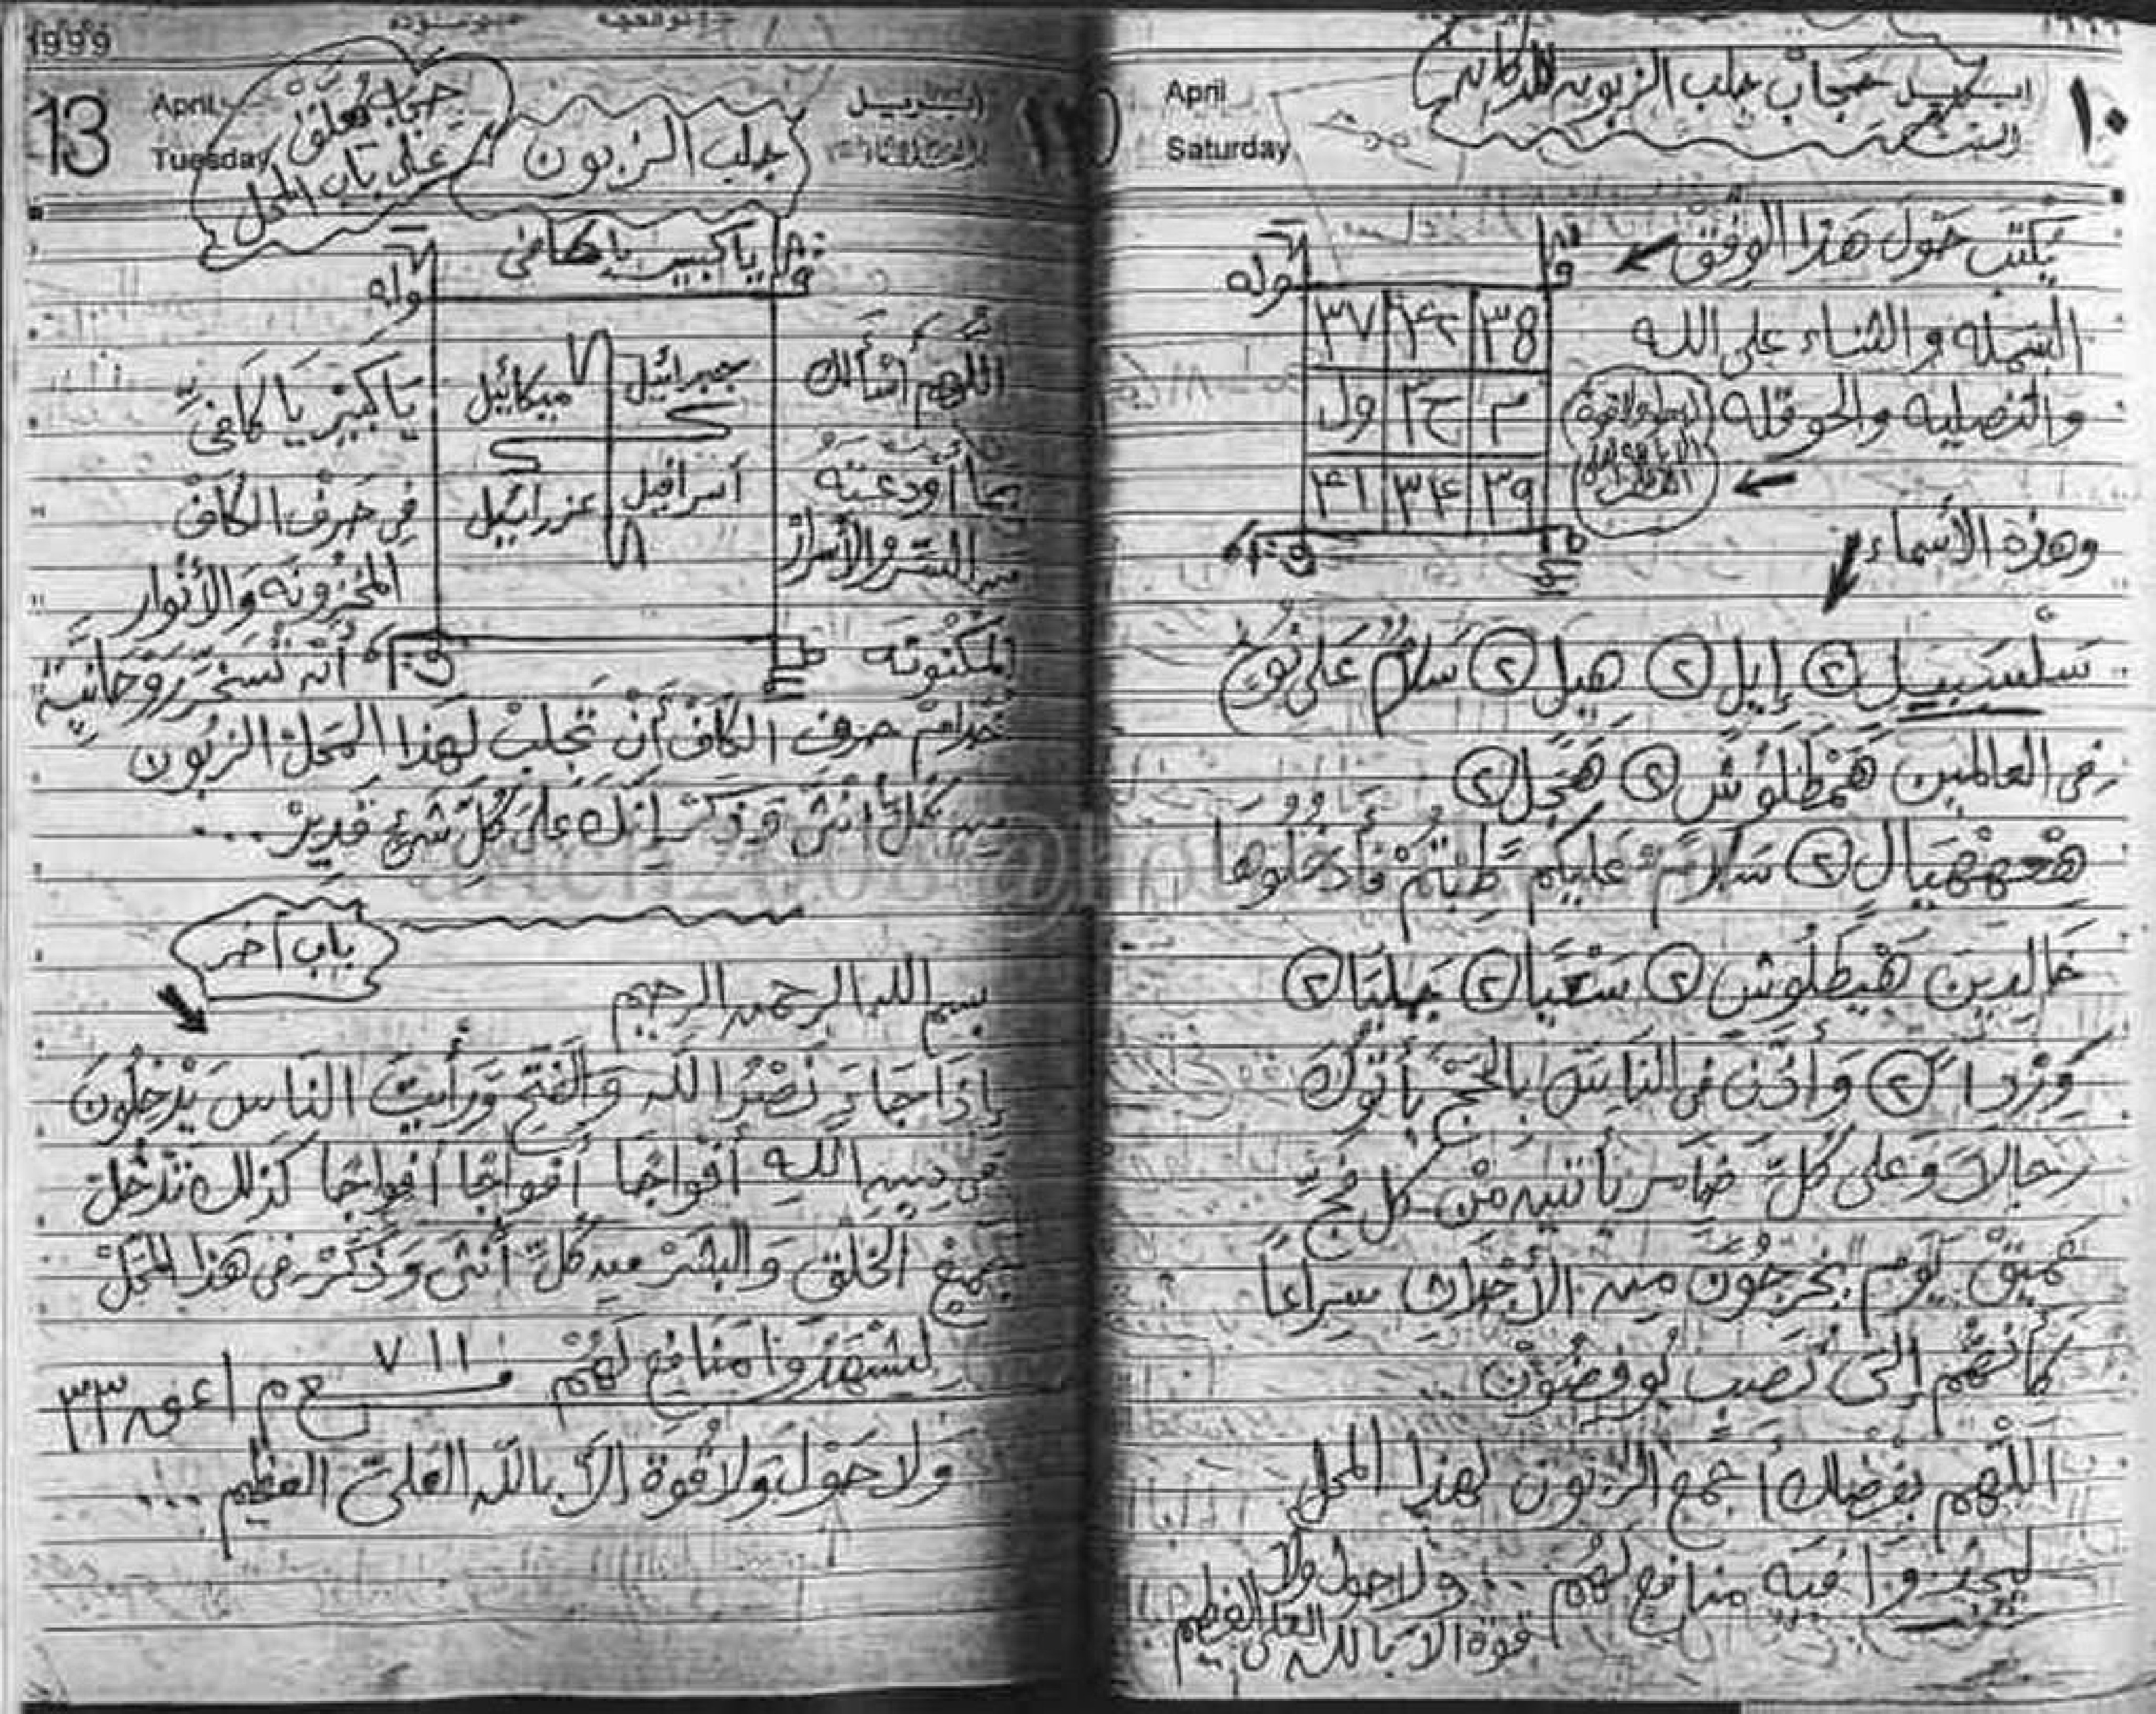 April
Saturday
١٠
حجاب جلب الزبون للدكانه
يكتب حول هذا الوفق
البسملة والثناء على الله
والتصلية والحوقلة
وهذه الأسماء
وله
٣٧ ٤٢ ٣٨
ول ٣ح م
٤١ ٣٤ ٣٩
سَلْسَبيل ٢ إيل ٢ هيل ٢ سَلامٌ عَلى نُوحٍ
في العالمين هَمْطَلُوش ٢ هَجَل ٢
هْعهْهَيَال ٢ سَلامٌ عَليكم طِبْتُمْ فَادخُلوهَا
خَالِدِينَ هَيْطَلُوش ٢ سَعْيَا ٢ يهليَا ٢
وَرْدَا ٢ وَأَذِّن في النَاسِ بِالحَجِّ يَأتُوكَ
رجالاً وَعلى كُلِّ ضَامر يأتينَ مِنْ كل فجٍّ
عَميقٍ يَوم يَخْرجُونَ من الأجْداث سِراعاً
كَأنَهُم إلَى نُصبٍ يُوفِضُونْ
اللَّهم بفضلك أجمع الزبون لهذا المحل
ليجدوا فيه منافع لهُم .. ولا حول ولا
قوة الا بالله العلي العظيم
1999
13
April
Tuesday
ابريل
حجاب مُعَلق
على باب المحل
جلب الزبون
يا كبير يا كافي
وله
جبرائيل ميكائيل
أسرافيل عزرائيل
اللَّهم أسَألك
يَا كَبير يا كَافي
بما أودعته
في حَرفْ الكَافْ
من السر والأسرار
المخزونَه وَالأنْوار
المكنُونَه
أن تُسَخرَ رَوحَانية
خدام حرف الكَافْ أن تجلبْ لهذا المحل الزبُون
من كل انثى وَ ذكَرْ إنَّك عَلى كُلِّ شَيءٍ قديرْ ...
باب آخر
بسم الله الرحمن الرحيم
إذَا جَاءَ نَصْرُ اللَّه وَالفَتح وَرَأيتَ النَاس يَدْخلُونَ
في دين اللهِ أفواجًا أفواجًا أفواجًا كذلك تَدْخُلْ
جميع الخَلْق وَالبشَرْ من كُلِّ أنثى وَذَكَرْ في هَذا المَحَلْ
ليشهَدُوا منَافعَ لَهُمْ
وَلا حَوْلَ وَلا قُوَة الاَّ بالله العَلي العظيم ...